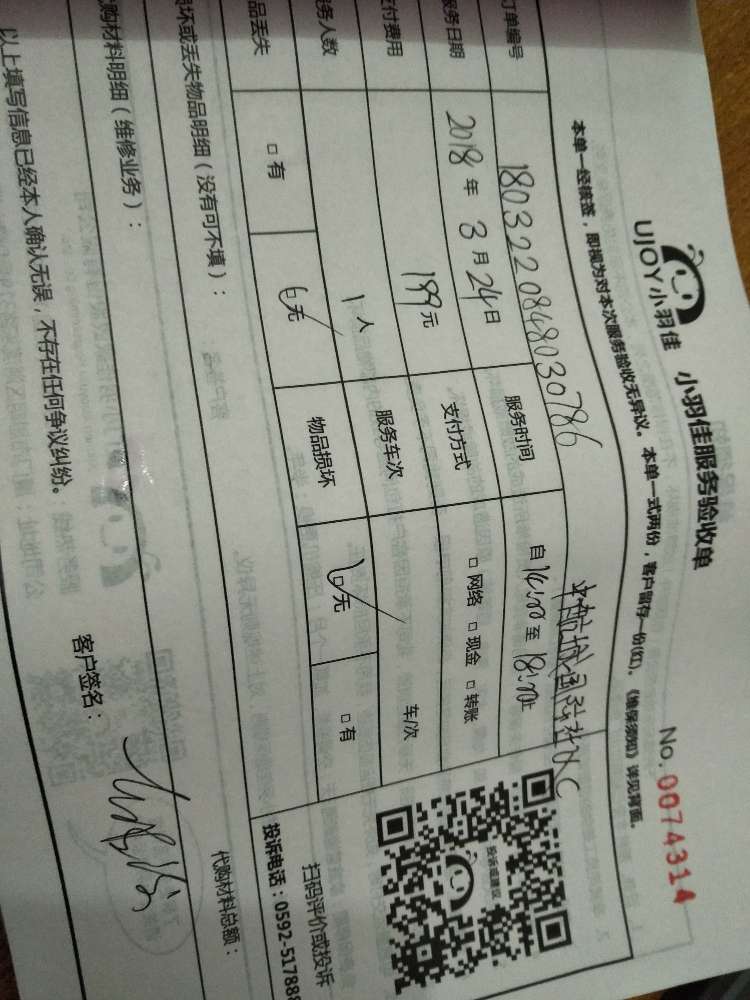 UJOY小羽佳 小羽佳服务验收单 No.0074314
本单一经核签，即视为对本次服务验收无异议。本单一式两份，客户留存一份(红)。《维保须知》详见背面。
订单编号 1803220848030786
服务日期 2018年3月24日 服务时间 自14:00至18:00止
支付费用 199元 支付方式 □网络 □现金 □转账
务人数 1人 服务车次 车/次
品丢失 □有 无 物品损坏 □无 □有
损坏或丢失物品明细（没有可不填）：
投诉或建议
扫码评价或投诉
投诉电话：0592-517888
购材料明细（维修业务）： 代购材料总额：
以上填写信息已经本人确认无误，不存在任何争议纠纷。 客户签名：